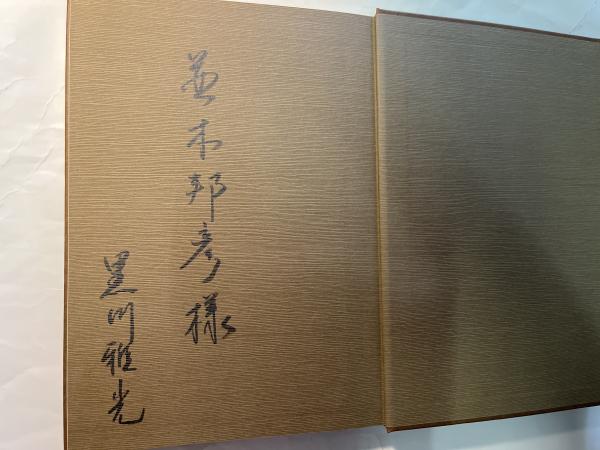 並木邦彦様
黒川雅光